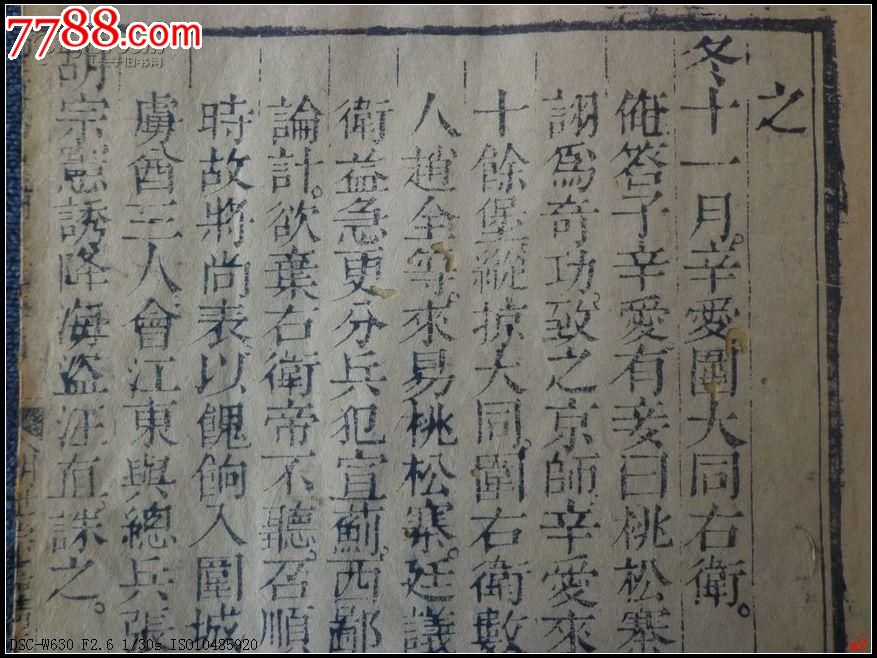 7788.com
之
冬十一月。辛愛圍大同右衛。
俺答子辛愛有妾曰桃松寨
詡爲奇功。致之京師。辛愛來
十餘堡。縱掠大同。圍右衛數
人趙全等。求易桃松寨。廷議
衛益急。更分兵犯宣薊。西鄙
論計。欲棄右衛。帝不聽。召順
時故將尚表以餽餉入圍城
虜酋三人會江東與總兵張
胡宗憲誘降海盜汪直。誅之。
DSC-W630 F2.6 1/30s ISO10485920
x2